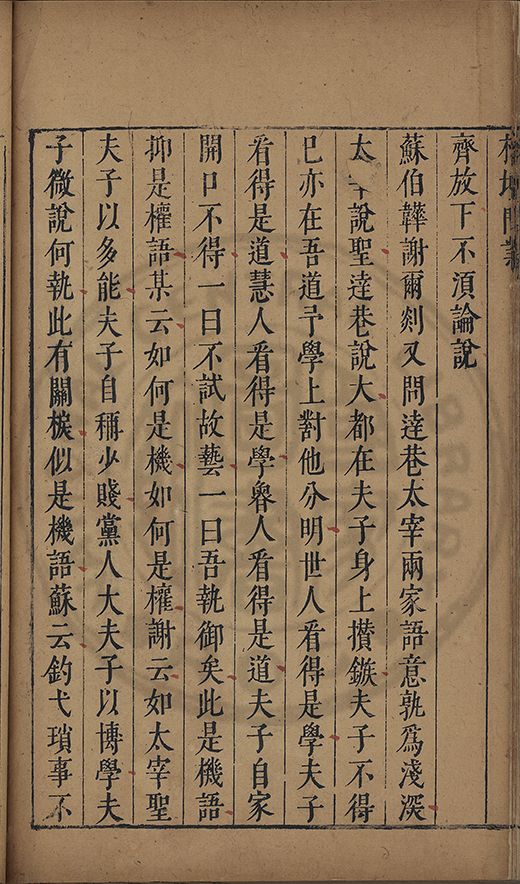 榕壇問業
齊放下不須論說
蘇伯韡謝爾剡又問達巷太宰兩家語意孰爲淺深
太宰說聖達巷說大都在夫子身上攢鏃夫子不得
已亦在吾道予學上對他分明世人看得是學夫子
看得是道慧人看得是學魯人看得是道夫子自家
開口不得一曰不試故藝一曰吾執御矣此是機語
抑是權語某云如何是機如何是權謝云如太宰聖
夫子以多能夫子自稱少賤黨人大夫子以博學夫
子微說何執此有關棙似是機語蘇云釣弋瑣事不